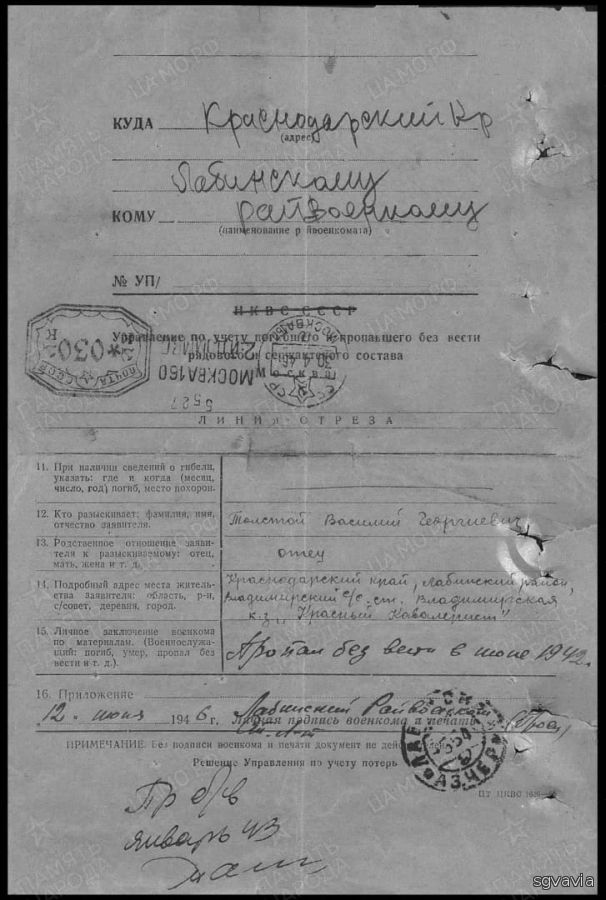 КУДА Краснодарский кр
(адрес)
Лабинскому
КОМУ райвоенкому
(наименование р йвоенкомата)
№ УП/
НКВС СССР
Управление по учету погибшего и пропавшего без вести
рядового и сержантского состава
ПОЧТА СССР
030
К
МОСКВА 150
5527
МОСКВА
30.4.46
ЛИНИЯ ОТРЕЗА
11. При наличии сведений о гибели, указать: где и когда (месяц, число, год) погиб, место похорон.
12. Кто разыскивает: фамилия, имя, отчество заявителя.
Толстой Василий Георгиевич
13. Родственное отношение заявителя к разыскиваемому: отец, мать, жена и т. д.
отец
14. Подробный адрес места жительства заявителя: область, р-н, с/совет, деревня, город.
Краснодарский край, Лабинский район,
Владимирский с/с. ст. Владимирская
к-з „Красный Кавалерист"
15. Личное заключение военкома по материалам. (Военнослужащий: погиб, умер, пропал без вести и т. д.).
Пропал без вести в июне 1942.
16. Приложение
12. июня 1946 г. Лабинский Райвоенком
Личная подпись военкома и печать
ПРИМЕЧАНИЕ: Без подписи военкома и печати документ не действителен.
Решение Управления по учету потерь
ПТ НКВС
Пр б/в
январь 43
sgvavia